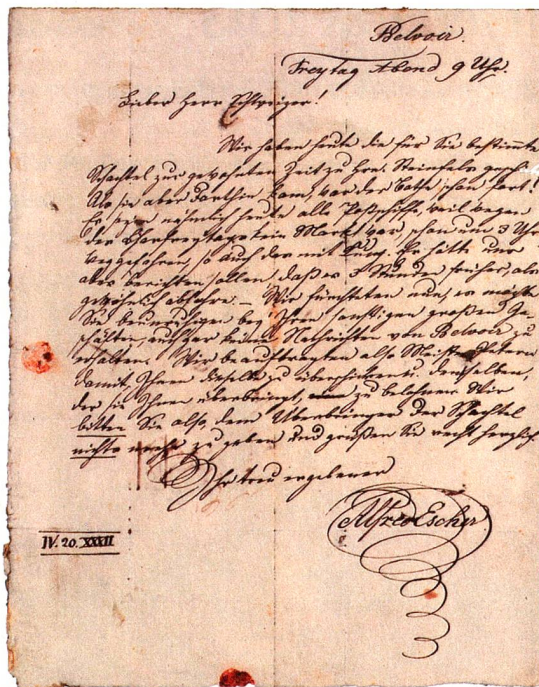 Belvoir.
Freytag Abend 9 Uhr.
Lieber Herr Schweizer!
Wir haben heute die für Sie bestimmte
Schachtel zur gewohnten Zeit zu Hrn. Steinfels geschickt
Als sie aber dorthin kam, war der Bothe schon fort!
Es seyen nämlich heute alle Postschiffe, weil wegen
des Charfreytags kein Markt war, schon um 3 Uhr
weggefahren, so auch das mit Er hätte uns
aber berichten sollen, daß er 3 Stunden früher, als
gewöhnlich abfahre. – Wir fürchteten nun, es möchte
Sie beunruhigen bey Ihren sonstigen großen Ge-
schäften, auch gar keine Nachrichten von Belvoir zu
erhalten. Wir beauftragten also
damit, Ihnen dieselbe zu überschicken u. denselben,
der sie Ihnen überbringt, zu belohnen. Wir
bitten Sie also, dem Überbringer der Schachtel
nichts mehr zu geben und grüßen Sie recht herzlich
Ihr treu ergebener
Alfred Escher
IV. 20. XXXII